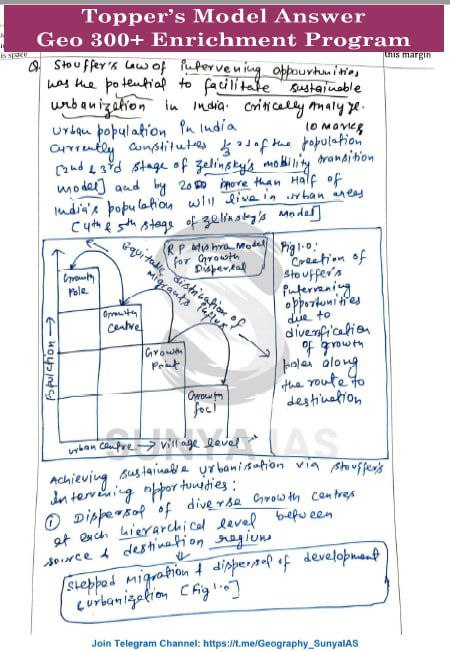 Topper's Model Answer
Geo 300+ Enrichment Program
is space
this margin
Q Stouffer's Law of Intervening Oppourtunities
has the potential to facilitate sustainable
urbanization in India. Critically Analyze.
10 Marks
Urban population in India
currently constitutes 1/3rd of the population
[2nd & 3rd stage of Zelinsky's mobility transition
model] and by 2050 more than Half of
India's population will live in urban areas
(4th & 5th stage of Zelinsky's Model]
R P Mishra Model
for Growth
Dispersal
Equitable distribution of
Migrants Influx
Growth
Pole
Growth
Centre
Growth
Point
Growth
foci
Population →
urban centre → village level
Fig 1.0:
Creation of
Stouffer's
intervening
opportunities
due to
diversification
of growth
poles along
the route to
destination
SUNYA IAS
Achieving sustainable urbanisation via Stouffer's
Intervening opportunities:
① Dispersal of diverse Growth centres
at each hierarchical level between
source & destination regions
↓
Stepped Migration & dispersal of development
& urbanization (Fig 1.0]
Join Telegram Channel: https://t.me/Geography_SunyaIAS